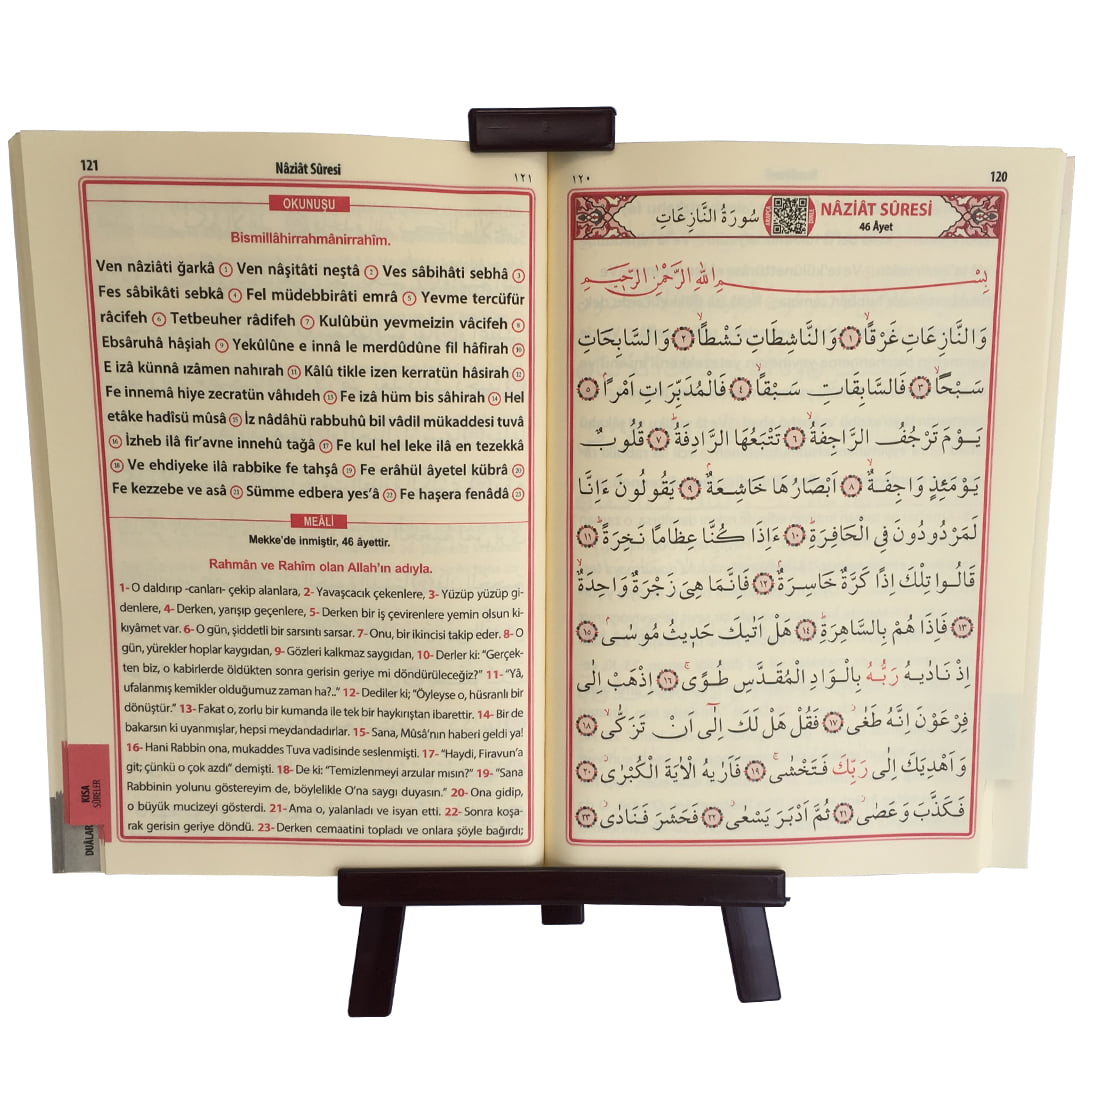 120
١٢٠
NÂZİÂT SÛRESİ
46 Âyet
سُورَةُ النَّازِعَاتِ
بِسْمِ اللّٰهِ الرَّحْمٰنِ الرَّحٖيمِ
وَالنَّازِعَاتِ غَرْقًاۙ ﴿١﴾ وَالنَّاشِطَاتِ نَشْطًاۙ ﴿٢﴾ وَالسَّابِحَاتِ
سَبْحًاۙ ﴿٣﴾ فَالسَّابِقَاتِ سَبْقًاۙ ﴿٤﴾ فَالْمُدَبِّرَاتِ اَمْرًاۢ ﴿٥﴾
يَوْمَ تَرْجُفُ الرَّاجِفَةُۙ ﴿٦﴾ تَتْبَعُهَا الرَّادِفَةُۜ ﴿٧﴾ قُلُوبٌ
يَوْمَئِذٍ وَاجِفَةٌۙ ﴿٨﴾ اَبْصَارُهَا خَاشِعَةٌۢ ﴿٩﴾ يَقُولُونَ ءَاِنَّا
لَمَرْدُودُونَ فِي الْحَافِرَةِۜ ﴿١٠﴾ ءَاِذَا كُنَّا عِظَامًا نَخِرَةًۜ ﴿١١﴾
قَالُوا تِلْكَ اِذًا كَرَّةٌ خَاسِرَةٌۢ ﴿١٢﴾ فَاِنَّمَا هِيَ زَجْرَةٌ وَاحِدَةٌۙ
﴿١٣﴾ فَاِذَا هُمْ بِالسَّاهِرَةِۜ ﴿١٤﴾ هَلْ اَتٰيكَ حَدٖيثُ مُوسٰىۢ ﴿١٥﴾
اِذْ نَادٰيهُ رَبُّهُ بِالْوَادِ الْمُقَدَّسِ طُوًىۚ ﴿١٦﴾ اِذْهَبْ اِلٰى
فِرْعَوْنَ اِنَّهُ طَغٰىۘ ﴿١٧﴾ فَقُلْ هَلْ لَكَ اِلٰٓى اَنْ تَزَكّٰىۙ ﴿١٨﴾
وَاَهْدِيَكَ اِلٰى رَبِّكَ فَتَخْشٰىۚ ﴿١٩﴾ فَاَرٰيهُ الْاٰيَةَ الْكُبْرٰىۘ ﴿٢٠﴾
فَكَذَّبَ وَعَصٰىۘ ﴿٢١﴾ ثُمَّ اَدْبَرَ يَسْعٰىۘ ﴿٢٢﴾ فَحَشَرَ فَنَادٰىۘ ﴿٢٣﴾
121
Nâziât Sûresi
١٢١
OKUNUŞU
Bismillâhirrahmânirrahîm.
Ven nâziâti ğarkâ 1 Ven nâşitâti neştâ 2 Ves sâbihâti sebhâ 3
Fes sâbikâti sebkâ 4 Fel müdebbirâti emrâ 5 Yevme tercüfür
râcifeh 6 Tetbeuher râdifeh 7 Kulûbün yevmeizin vâcifeh 8
Ebsâruhâ hâşiah 9 Yekûlûne e innâ le merdûdûne fil hâfirah 10
E izâ künnâ ızâmen nahırah 11 Kâlû tikle izen kerratün hâsirah 12
Fe innemâ hiye zecratün vâhıdeh 13 Fe izâ hüm bis sâhirah 14 Hel
etâke hadîsü mûsâ 15 İz nâdâhü rabbuhû bil vâdil mükaddesi tuvâ
16 İzheb ilâ fir’avne innehû tağâ 17 Fe kul hel leke ilâ en tezekkâ
18 Ve ehdiyeke ilâ rabbike fe tahşâ 19 Fe erâhül âyetel kübrâ 20
Fe kezzebe ve asâ 21 Sümme edbera yes’â 22 Fe haşera fenâdâ 23
MEÂLİ
Mekke’de inmiştir, 46 âyettir.
Rahmân ve Rahîm olan Allah’ın adıyla.
1- O daldırıp -canları- çekip alanlara, 2- Yavaşcacık çekenlere, 3- Yüzüp yüzüp gi-
denlere, 4- Derken, yarışıp geçenlere, 5- Derken bir iş çevirenlere yemin olsun ki-
kıyâmet var. 6- O gün, şiddetli bir sarsıntı sarsar. 7- Onu, bir ikincisi takip eder. 8- O
gün, yürekler hoplar kaygıdan, 9- Gözleri kalkmaz saygıdan, 10- Derler ki: “Gerçek-
ten biz, o kabirlerde öldükten sonra gerisin geriye mi döndürüleceğiz?” 11- “Yâ,
ufalanmış kemikler olduğumuz zaman ha?..” 12- Dediler ki; “Öyleyse o, hüsranlı bir
dönüştür.” 13- Fakat o, zorlu bir kumanda ile tek bir haykırıştan ibarettir. 14- Bir de
bakarsın ki uyanmışlar, hepsi meydandadırlar. 15- Sana, Mûsâ’nın haberi geldi ya!
16- Hani Rabbin ona, mukaddes Tuva vadisinde seslenmişti. 17- “Haydi, Firavun’a
git; çünkü o çok azdı” demişti. 18- De ki: “Temizlenmeyi arzular mısın?” 19- “Sana
Rabbinin yolunu göstereyim de, böylelikle O’na saygı duyasın.” 20- Ona gidip,
o büyük mucizeyi gösterdi. 21- Ama o, yalanladı ve isyan etti. 22- Sonra koşa-
rak gerisin geriye döndü. 23- Derken cemaatini topladı ve onlara şöyle bağırdı;
KISA
SÛRELER
DUÂLAR